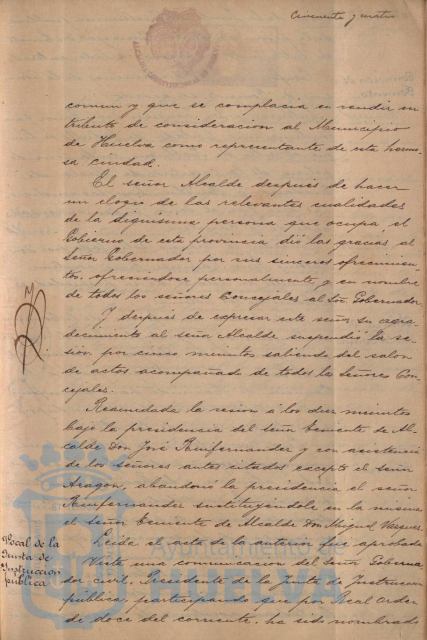 Cincuenta y cuatro
comun y que se complacia en rendir un
tributo de consideracion al Municipio
de Huelva como representante de esta hermo-
sa ciudad.
El señor Alcalde despues de hacer
un elogio de las relevantes cualidades
de la dignisima persona que ocupa el
Gobierno de esta provincia dió las gracias al
Señor Gobernador por sus sinceros ofrecimien-
tos, ofreciendose personalmente y en nombre
de todos los señores Concejales al Sor. Gobernador.
Y despues de expresar este señor su agra-
decimiento al señor Alcalde suspendió la se-
sion por cinco minutos saliendo del salon
de actos acompañado de todos los Señores Con-
cejales.
Reanudada la sesion á los diez minutos
bajo la presidencia del señor teniente de Al-
calde Don José y con asistencia
de los señores antes citados excepto el señor
Aragon, abandonó la presidencia el señor
sustituyendole en la misma
el señor teniente de Alcalde Don Miguel Vazquez.
Leida el acta de la anterior fue aprobada
Vocal de la
Junta de
Instruccion
pública
Vista una comunicacion del Señor Goberna-
dor civil, Presidente de la Junta de Instruccion
pública, participando que por Real orden
de doce del corriente, ha sido nombrado
Ayuntamiento de
HUELVA